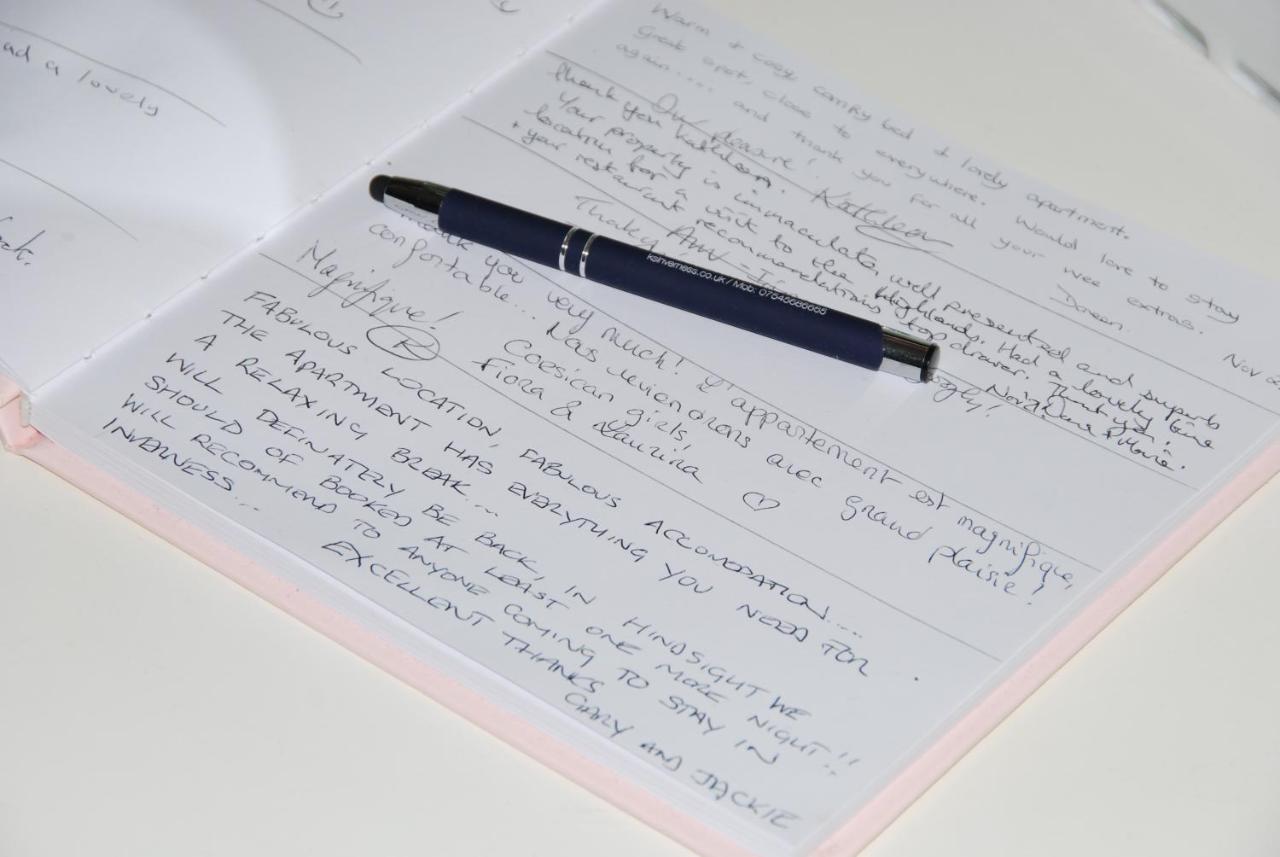 ad a lovely
Warm + cosy comfy bed + lovely apartment.
great spot, close to everywhere. Would love to stay
again.... and thank you for all your wee extras.
Doreen.
Our pleasure! Kathleen
Nov
Thank you Kathleen.
Your property is immaculate, well presented and superb
location for a visit to the Highland. Had a lovely time
+ your restaurant recommendations top drawer. Thank you!
you very much! L'appartement est magnifique,
confortable... Nas reviendrons avec grand plaisir!
Corsican girls,
Fiora &
Magnifique!
R
FABULOUS LOCATION, FABULOUS ACCOMODATION....
THE APARTMENT HAS EVERYTHING YOU NEED FOR
A RELAXING BREAK...
WILL DEFINATELY BE BACK, IN HINDSIGHT WE
SHOULD OF BOOKED AT LEAST ONE MORE NIGHT!!
WILL RECOMMEND TO ANYONE COMING TO STAY IN
INVERNESS...
EXCELLENT THANKS
GARY AND JACKIE
ksinverness.co.uk / Mob.